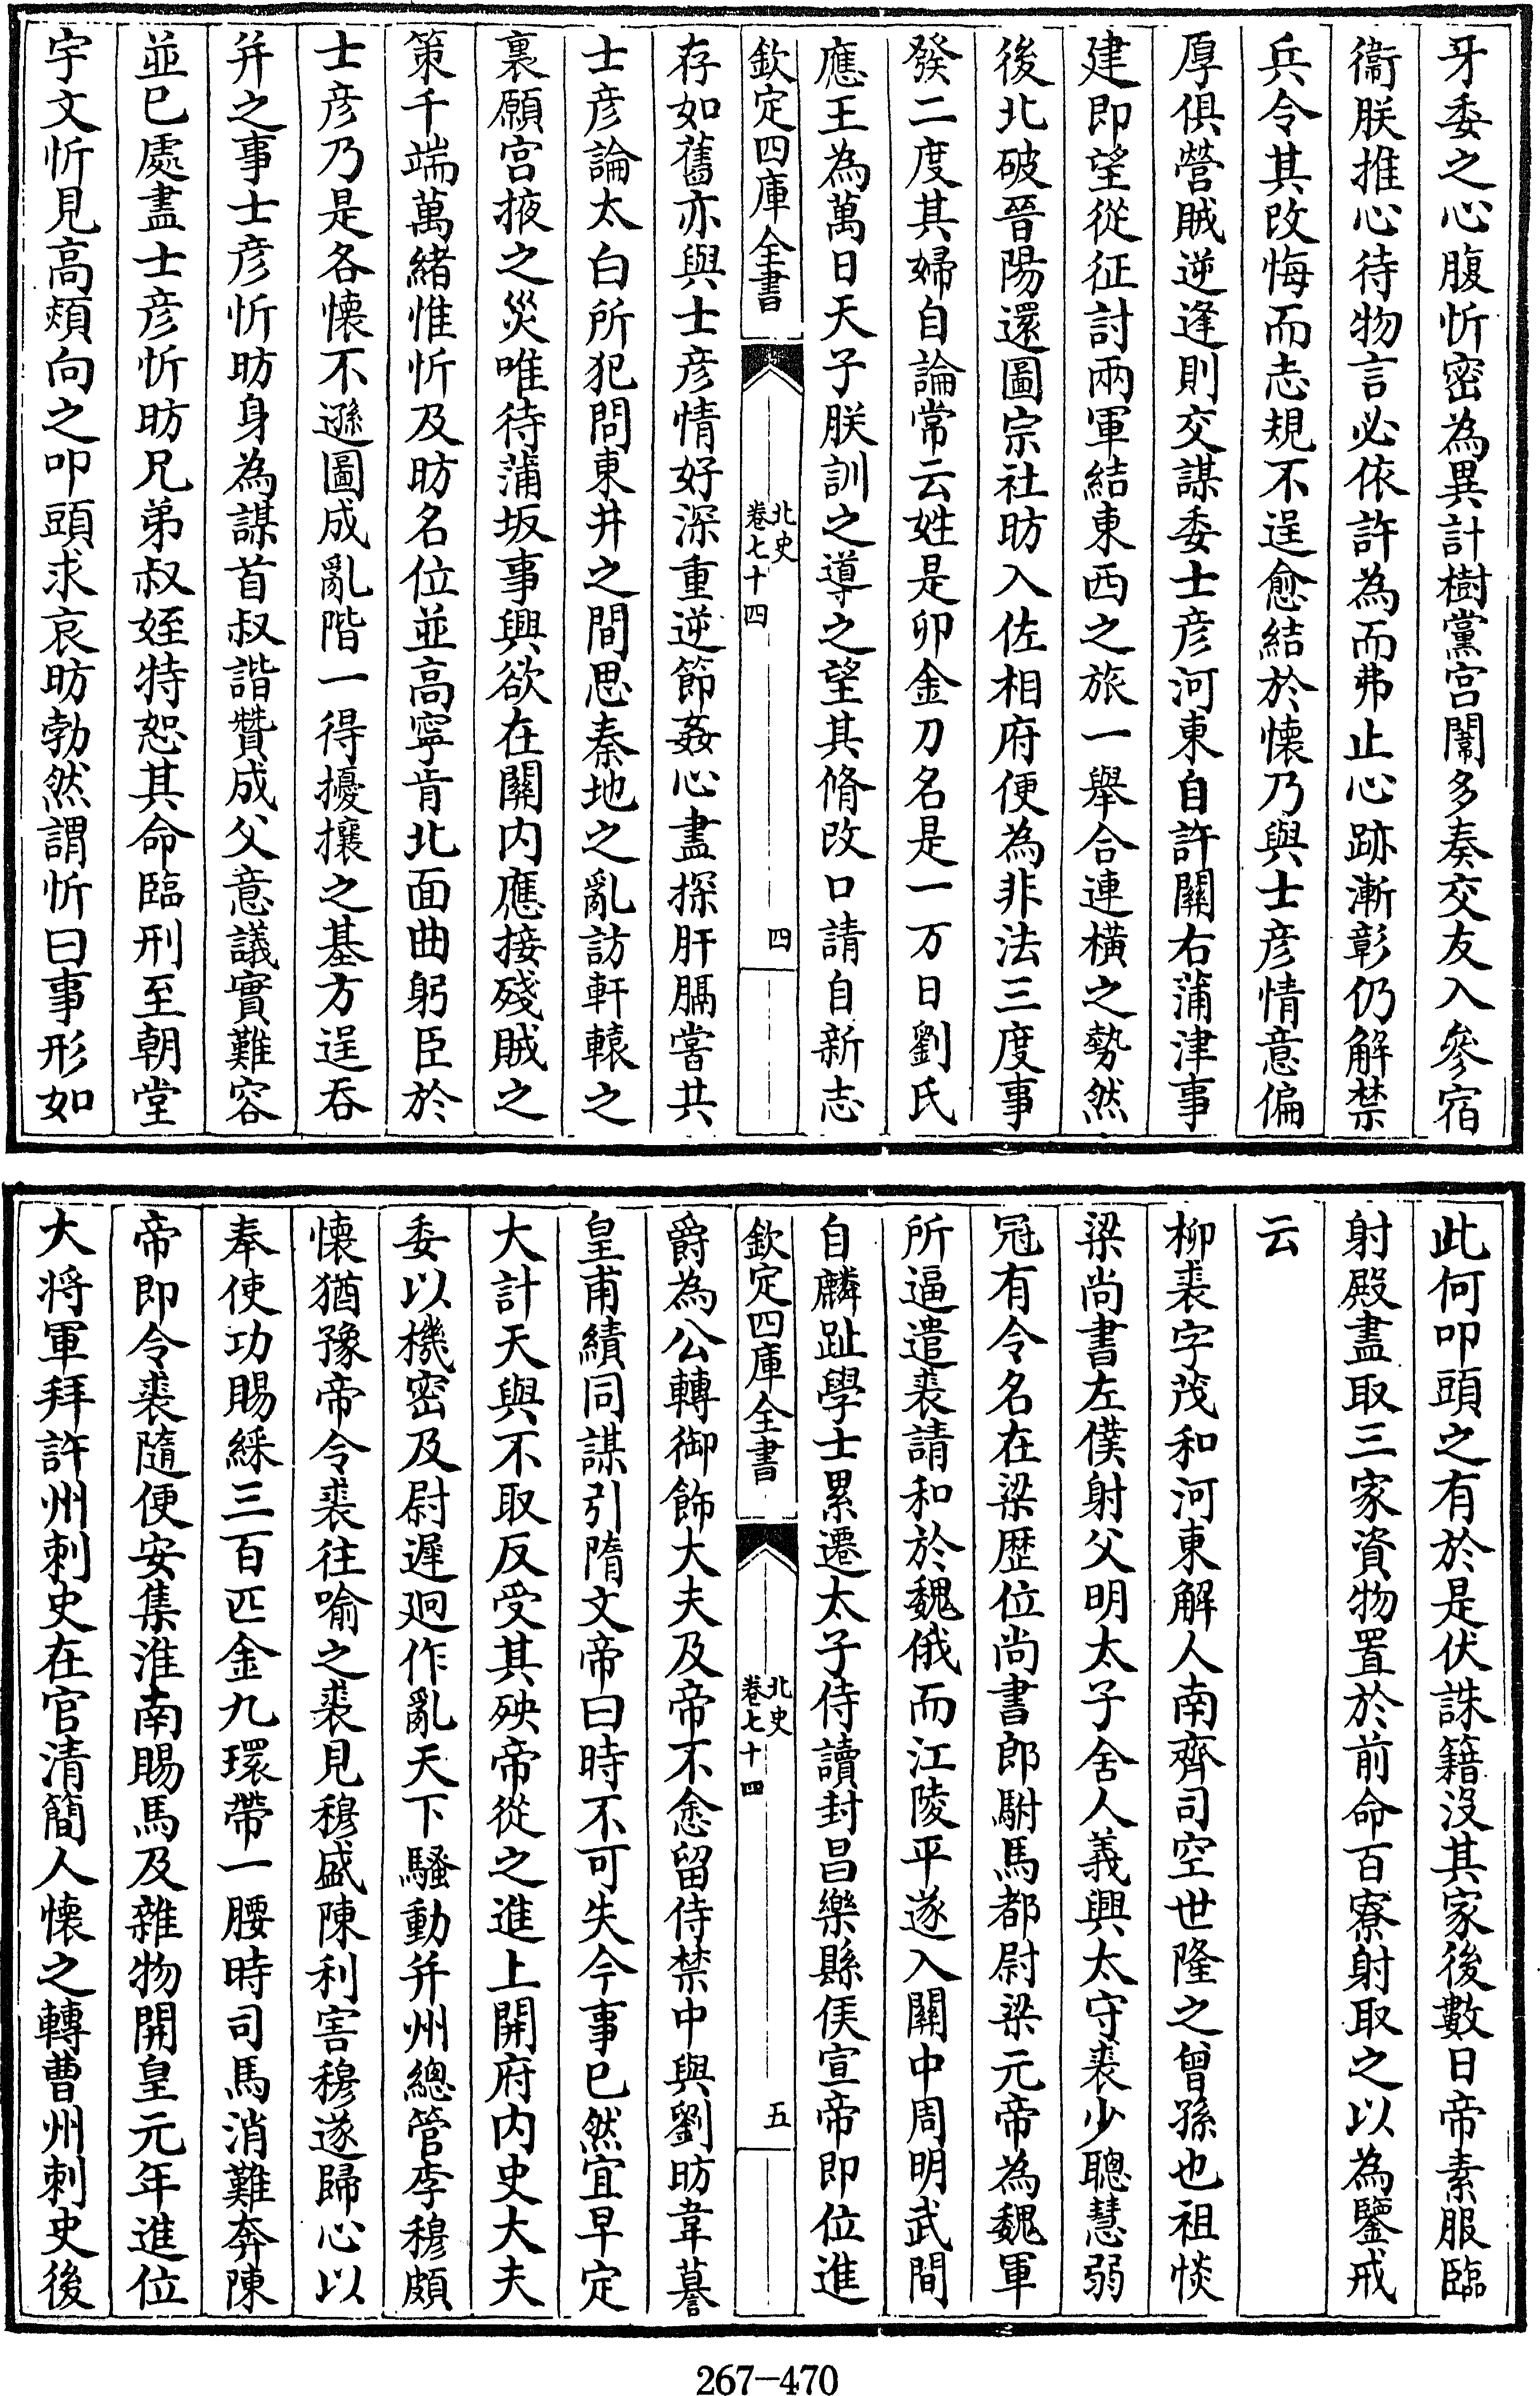 牙委之心腹忻密為異計樹黨宫闈多奏交友入參宿
衞朕推心待物言必依許為而弗止心跡漸彰仍解禁
兵令其改悔而志規不逞愈結於懐乃與士彦情意偏
厚俱營賊逆逢則交謀委士彦河東自許關右蒲津事
建即望從征討兩軍結東西之旅一舉合連橫之勢然
後北破晉陽還圖宗社昉入佐相府便為非法三度事
發二度其婦自論常云姓是卯金刀名是一万日劉氏
應王為萬日天子朕訓之導之望其脩改口請自新志
欽定四庫全書
北史
卷七十四
四
存如舊亦與士彦情好深重逆節姦心盡探肝膈嘗共
士彦論太白所犯問東井之間思秦地之亂訪軒轅之
裏願宫掖之災唯待蒲坂事興欲在關内應接殘賊之
策千端萬緒惟忻及昉名位並高寜肯北面曲躬臣於
士彦乃是各懐不遜圖成亂階一得擾攘之基方逞吞
并之事士彦忻昉身為謀首叔諧贊成父意議實難容
並已處盡士彦忻昉兄弟叔姪特恕其命臨刑至朝堂
宇文忻見高熲向之叩頭求哀昉勃然謂忻曰事形如
此何叩頭之有於是伏誅籍沒其家後數日帝素服臨
射殿盡取三家資物置於前命百寮射取之以為鑒戒
云
柳裘字茂和河東解人南齊司空世隆之曾孫也祖惔
梁尚書左僕射父明太子舍人義興太守裘少聰慧弱
冠有令名在梁歴位尚書郎駙馬都尉梁元帝為魏軍
所逼遣裘請和於魏俄而江陵平遂入關中周明武間
自麟趾學士累遷太子侍讀封昌樂縣侯宣帝即位進
欽定四庫全書
北史
卷七十四
五
爵為公轉御飾大夫及帝不悆留侍禁中與劉昉韋謩
皇甫績同謀引隋文帝曰時不可失今事已然宜早定
大計天與不取反受其殃帝從之進上開府内史大夫
委以機密及尉遲迥作亂天下騷動并州總管李穆頗
懐猶豫帝令裘往喻之裘見穆盛陳利害穆遂歸心以
奉使功賜綵三百匹金九環帶一腰時司馬消難奔陳
帝即令裘隨便安集淮南賜馬及雜物開皇元年進位
大将軍拜許州刺史在官清簡人懐之轉曹州刺史後
267-470